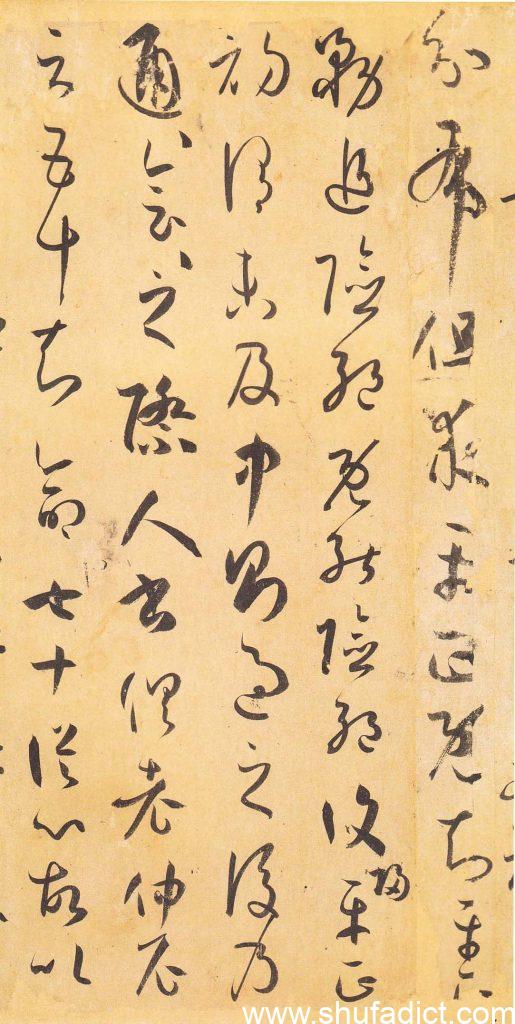 分布但求平正既知平正
務追險絶既能險絶復歸平正
初謂未及中則過之後乃
通〻會〻之際人書俱老仲尼
云五十知命七十從心故以
www.shufadict.com